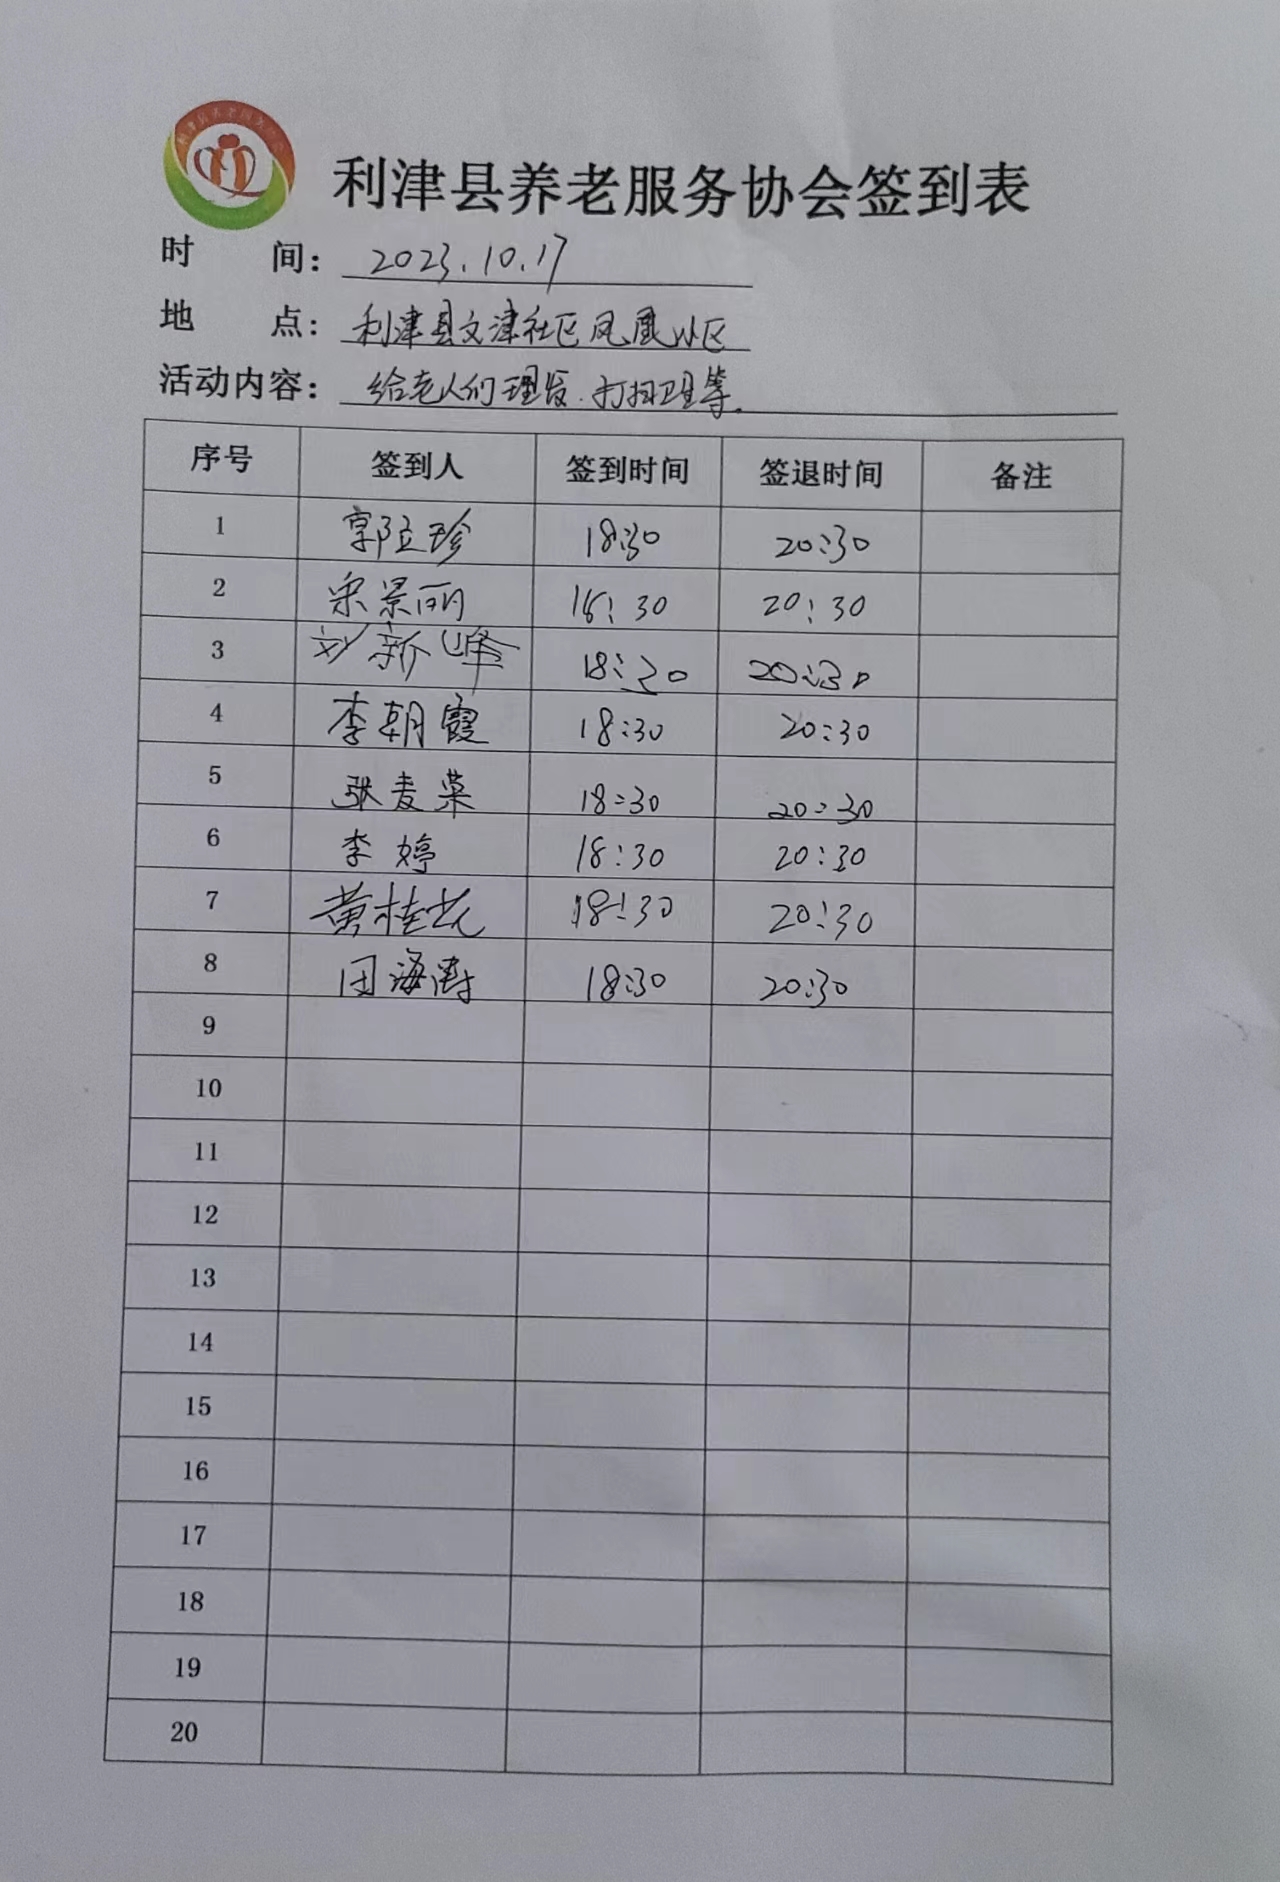 利津县养老服务协会签到表
时 间：2023.10.17
地 点：利津县文津社区凤凰小区
活动内容：给老人们理发.打扫卫生等.
序号 签到人 签到时间 签退时间 备注
1 郭立珍 18:30 20:30
2 宋景丽 18:30 20:30
3 刘新峰 18:30 20:30
4 李朝霞 18:30 20:30
5 张麦荣 18:30 20:30
6 李婷 18:30 20:30
7 黄桂花 18:30 20:30
8 田海涛 18:30 20:30
9
10
11
12
13
14
15
16
17
18
19
20